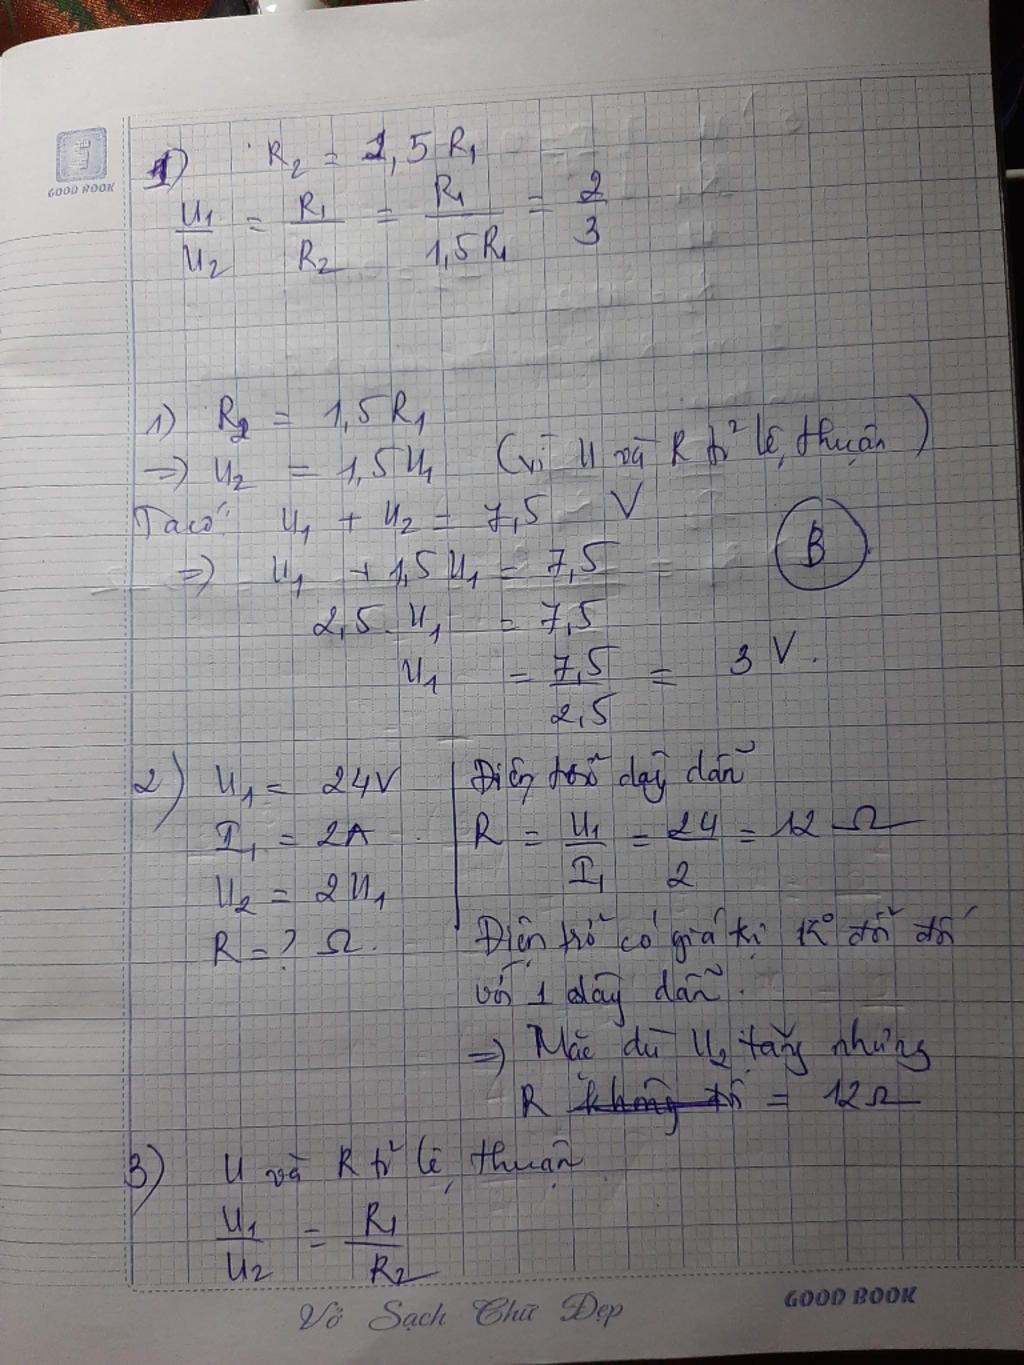 GOOD BOOK
1) R₂ = 1,5 R₁
U₁/U₂ = R₁/R₂ = R₁/1,5R₁ = 2/3
1) R₂ = 1,5R₁
=> U₂ = 1,5U₁ (vì U và R tỉ lệ thuận)
Ta có: U₁ + U₂ = 7,5 V
=> U₁ + 1,5U₁ = 7,5
B
2,5. U₁ = 7,5
U₁ = 7,5/2,5 = 3 V.
2) U₁ = 24V
I₁ = 2A
U₂ = 2U₁
R = ? Ω.
Điện trở dây dẫn
R = U₁/I₁ = 24/2 = 12 Ω
Điện trở có giá trị k° đổi đối
với 1 dây dẫn.
=> Mặc dù U₂ tăng nhưng
R không đổi = 12Ω
3) U và R tỉ lệ thuận
U₁/U₂ = R₁/R₂
Vở Sạch Chữ Đẹp
GOOD BOOK